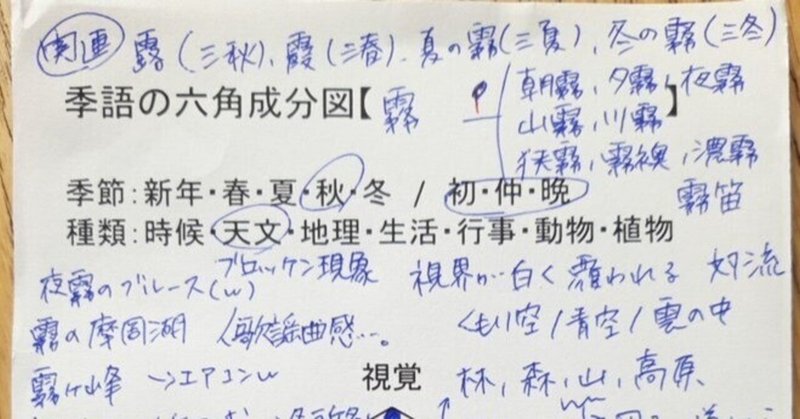 関連 露(三秋)、霞(三春)、夏の霧(三夏)、冬の霧(三冬)
季語の六角成分図【 霧 】
朝霧、夕霧、夜霧
山霧、川霧
狭霧、霧襖、濃霧
霧笛
季節:新年・春・夏・秋・冬 / 初・仲・晩
種類:時候・天文・地理・生活・行事・動物・植物
夜霧のブルース(w) ブロッケン現象 視界が白く 奴流
霧の摩周湖 歌謡曲感…。 くもり空/青空/雲の中
霧ヶ峰 →エアコンw 視覚 林、森、山、高原、